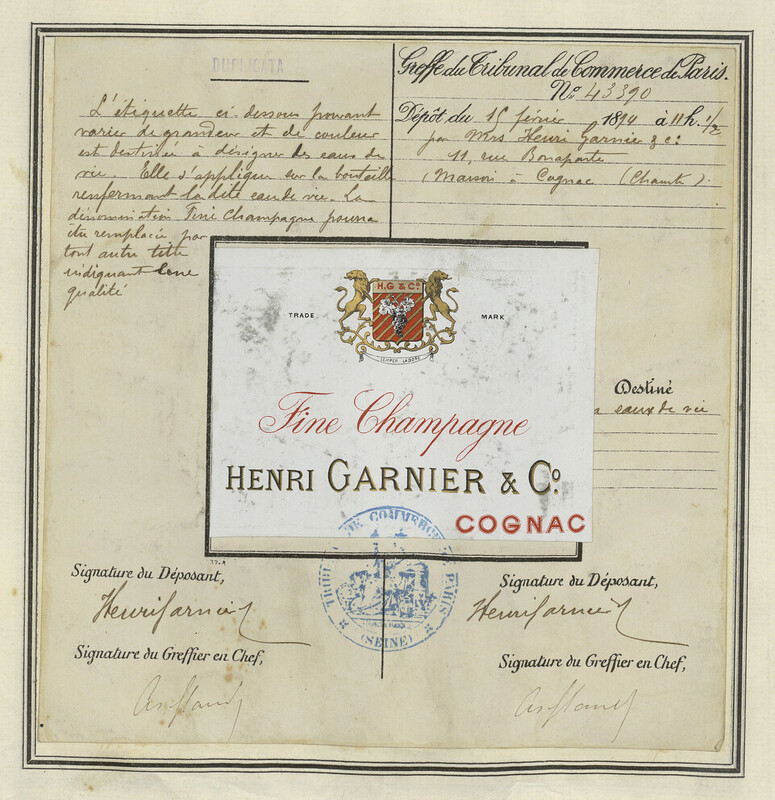 DUPLICATA
L'étiquette ci-dessous pouvant
varier de grandeur et de couleur
est destinée à désigner des eaux de
vie. Elle s'applique sur la bouteille
renfermant la dite eau de vie. La
dénomination Fine Champagne pourra
être remplacée par
tout autre titre
indiquant une
qualité
Greffe du Tribunal de Commerce de Paris.
No. 43390
Dépôt du 15 février 1894 à 11 h. 1/2
par Mrs Henri Garnier & Co.
11, rue Bonaparte
(Maison à Cognac (Charte).
H.G & Co.
TRADE MARK
SEMPER LABORE
Fine Champagne
HENRI GARNIER & Co.
COGNAC
Destiné
eaux de vie
TRIBUNAL DE COMMERCE DE PARIS
(SEINE)
Signature du Déposant,
Henri Garnier
Signature du Greffier en Chef,
Signature du Déposant,
Henri Garnier
Signature du Greffier en Chef,